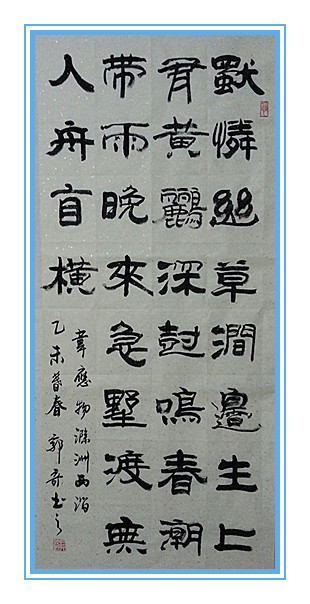 獨憐幽草澗邊生上
有黃鸝深尌鳴春潮
帶雨晚來急墅渡無
人舟自橫
韋應物滁洲西澗
乙未暮春 郭奇书之